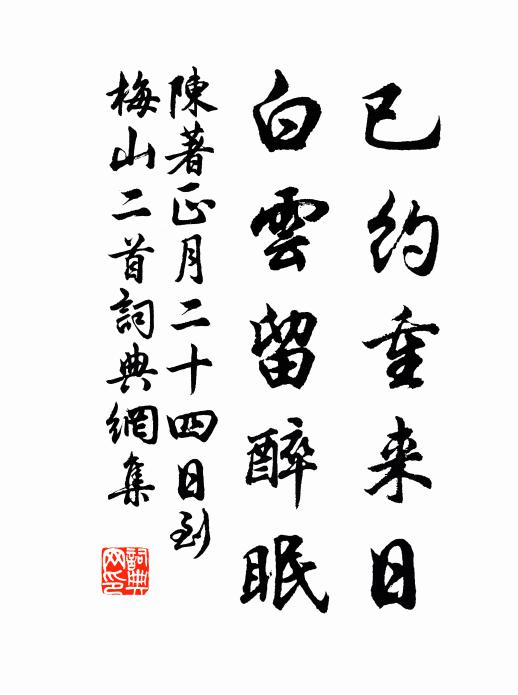 已约重来日
白雲留醉眠
陳著正月二十四日到
梅山二首詞典網集
詞典网印